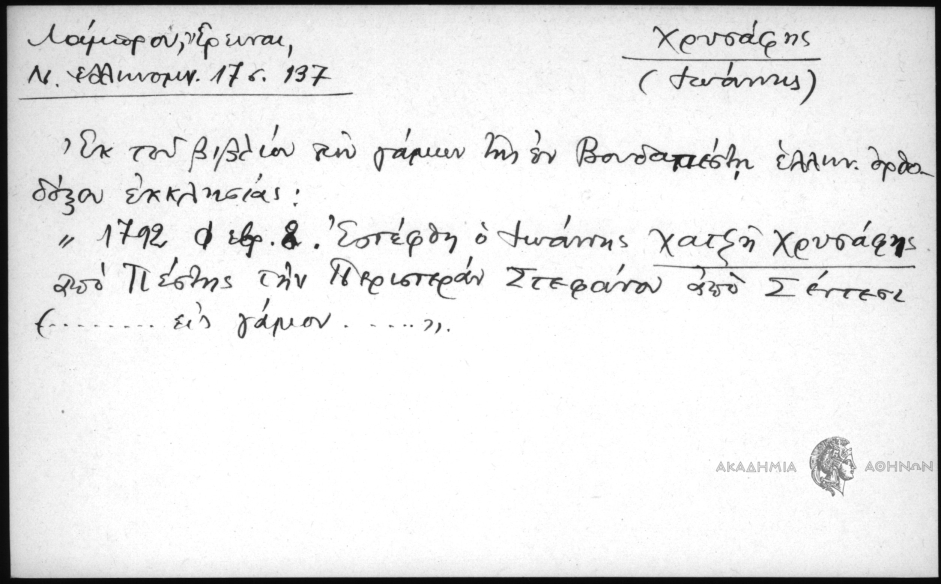 Λάμπρου, Ἔρευναι,
Ν. Ἑλληνομν. 17 σ. 137
Χρυσάφης
(Ἰωάννης)
Ἐκ τοῦ βιβλίου τῶν γάμων τῆς ἐν Βουδαπέστῃ ἑλλην. ὀρθο-
δόξου ἐκκλησίας:
„ 1792 Φεβρ. 2. Ἐστέφθη ὁ Ἰωάννης Χατζῆ Χρυσάφης
ἀπὸ Πέστης τὴν Περιστεράν Στεφάνου ἀπὸ Σέντεσι
(........ εἰς γάμον .....».
ΑΚΑΔΗΜΙΑ ΑΘΗΝΩΝ